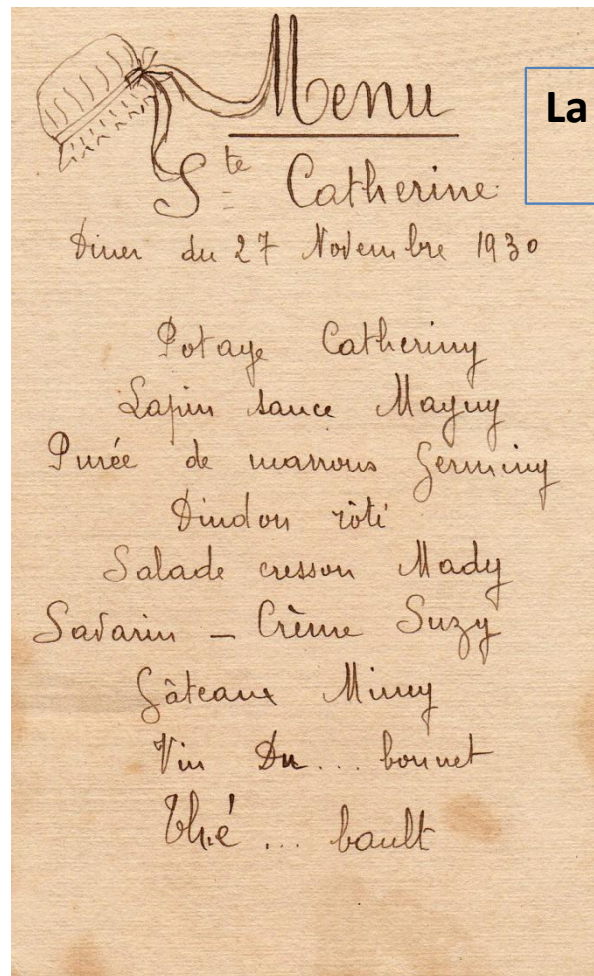 Menu
La
Ste Catherine
Diner du 27 Novembre 1930
Potage Catheriny
Lapin sauce Maguy
Purée de marrons Germiny
Dindon rôti
Salade cresson Mady
Savarin - Crème Suzy
Gâteaux Mimy
Vin Du... bonnet
Thé... bault